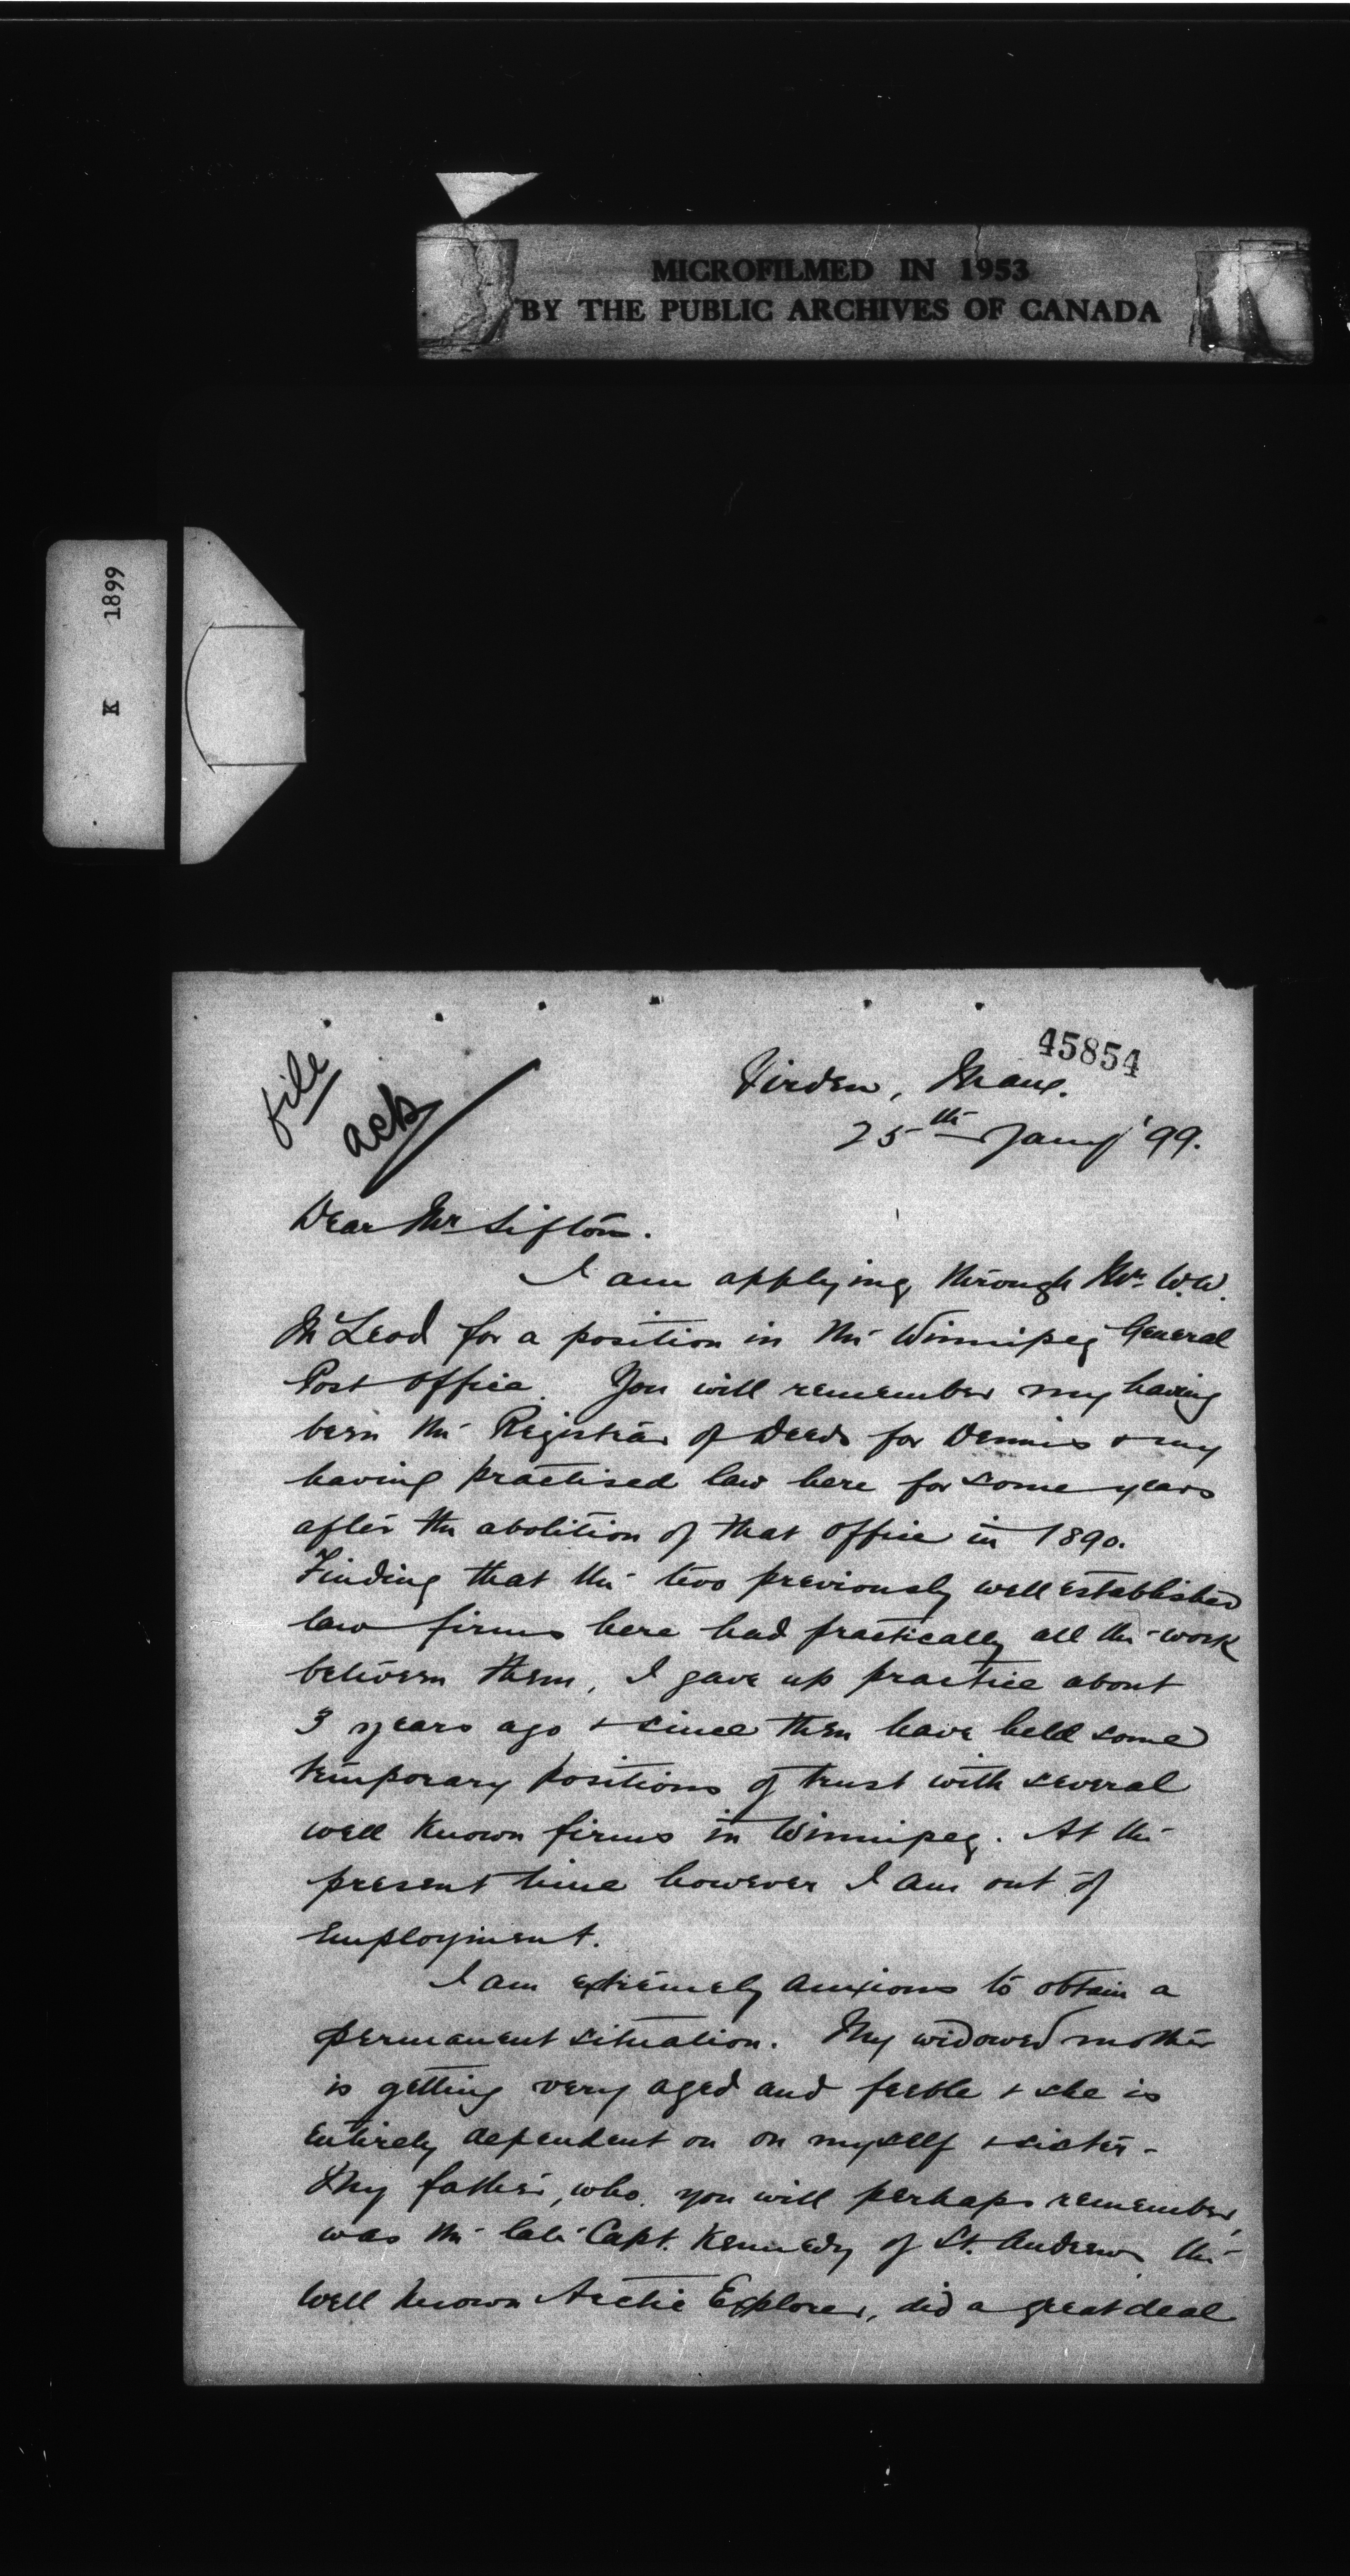 MICROFILMED IN 1953
BY THE PUBLIC ARCHIVES OF CANADA
K 1899
45854
file
ack
Virden, Man.
25th Jany '99.
Dear Mr Sifton.
I am applying through Mr. W.W.
McLeod for a position in the Winnipeg General
Post Office. You will remember my having
been the Registrar of Deeds for Dennis & my
having practised law here for some years
after the abolition of that office in 1890.
Finding that the two previously well established
law firms here had practically all the work
between them, I gave up practice about
3 years ago & since then have held some
temporary positions of trust with several
well known firms in Winnipeg. At the
present time however I am out of
employment.
I am extremely anxious to obtain a
permanent situation. My widowed mother
is getting very aged and feeble & she is
entirely dependent on on myself & sister.
My father, who, you will perhaps remember,
was the late Capt. Kennedy of St. Andrews the
well known Arctic Explorer, did a great deal